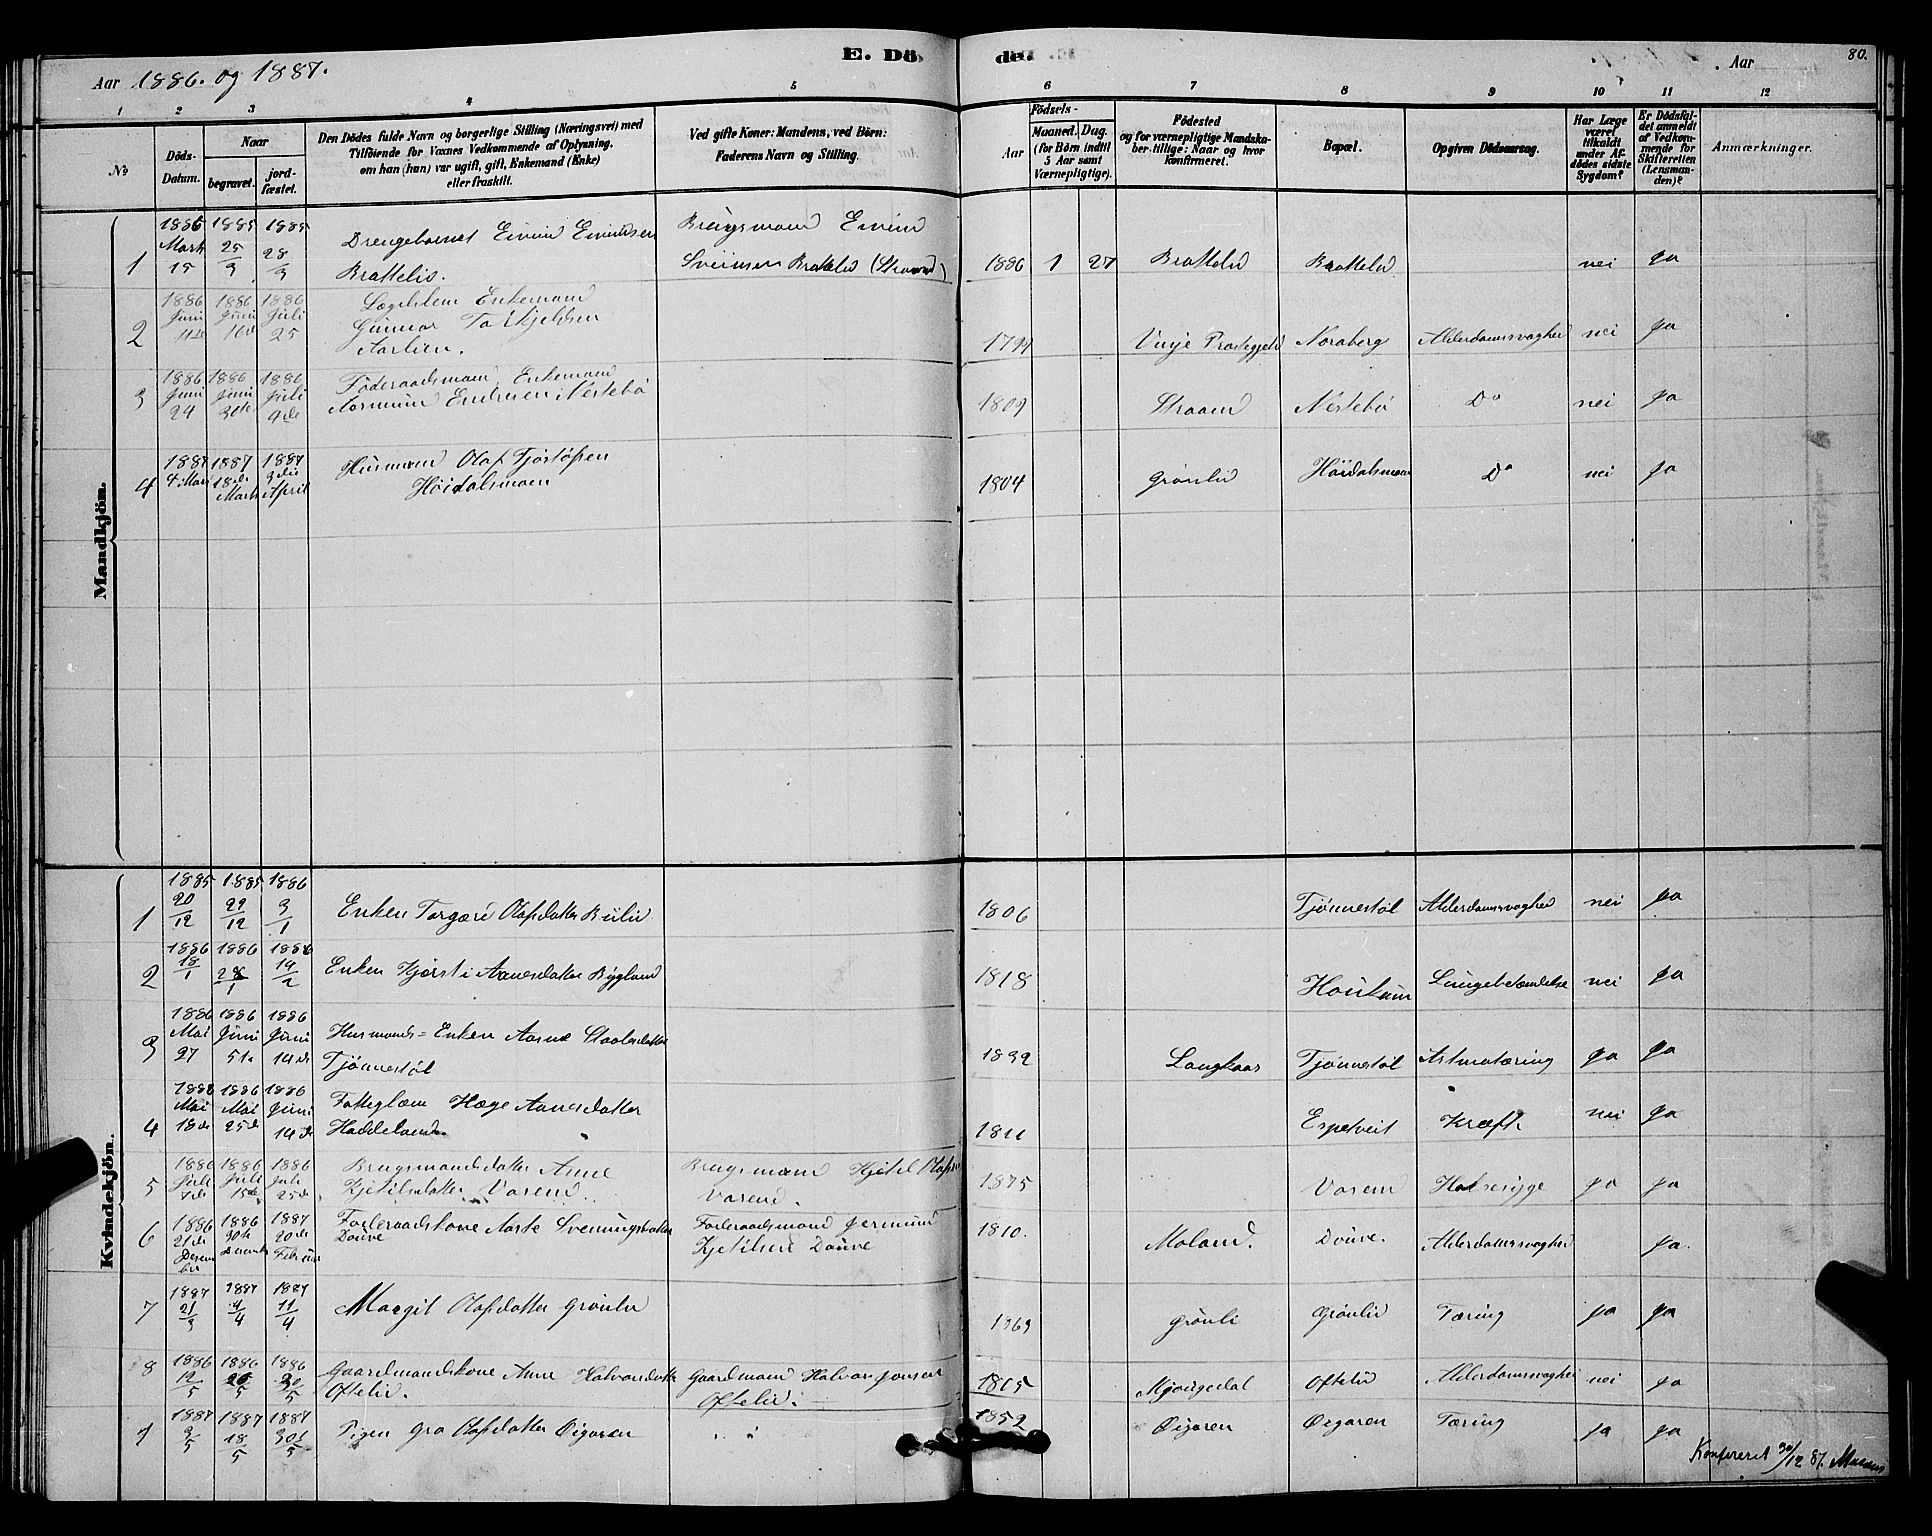 E. Döde.
80.
Aar 1886. og 1887.
Aar
1 2 3 4 5 6 7 8 9 10 11 12
No
Döds-Datum.
Naar
begravet.
jord-fæstet.
Den Dödes fulde Navn og borgerlige Stilling (Næringsvei) med
Tilföiende for Voxnes Vedkommende af Oplysning,
om han (hun) var ugift, gift, Enkemand (Enke)
eller fraskilt.
Ved gifte Koner: Mandens, ved Börn:
Faderens Navn og Stilling.
Födsels-
Aar
Maaned. Dag.
(for Börn indtil
5 Aar samt
Værnepligtige).
Födested
og for værnepligtige Mandska-
ber tillige: Naar og hvor
konfirmeret.
Bopæl.
Opgiven Dödsaarsag.
Har Læge
været
tilkaldt
under Af-
dödes sidste
Sygdom?
Er Dödsfal-
det anmeldt
af Vedkom-
mende for
Skifteretten
(Lensman-
den)?
Anmærkninger.
Mandkjön.
1 1886 Marts 15 1885 25/3 1885 28/3 Drengebarnet Eivind Eivindsen Brattelid. Brugsmand Eivind Sveinsen Brattelid (Straand) 1886 1 27 Brattelid Brattelid nei ja
2 1886 Juni 11te 1886 Juni 16de 1886 Juli 25 Lægdslem Enkemand Gunnar Torkjeldsen Aarlien. 1794 Vinje Præstegjeld Noraberg Alderdomssvaghed nei ja
3 1886 Juni 24 1886 Juni 30te 1886 Juli 9de Föderaadsmand, Enkemand Aasmund Endresen Nestebö 1809 Straand Nestebö Do nei ja
4 1887 4 Mars 1887 18de Marts 1887 3die April Husmand Olaf Tjöstöfsen Höidalsmoen 1804 Grönlid Höidalsmoen Do nei ja
Kvindekjön.
1 1885 20/12 1885 29/12 1886 3/1 Enken Torgjerd Olafsdatter Bulid 1806 Tjönnestöl Alderdomssvaghed nei ja
2 1886 18/1 1886 28/1 1886 19/2 Enken Kjersti Aanesdatter Bygland 1818 Lungebetændelse nei ja
3 1886 Mai 27 1886 Juni 5te 1886 Juni 14de Husmands-Enken Aasne Staalesdatter Tjönnestöl 1832 Langkaas Tjönnestöl Astmatæring ja ja
4 1886 Mai 18de 1886 Mai 25de 1886 Juni 14de Fattiglem Hæge Aanesdatter Haddeland. 1811 Espetveit Kræft. nei ja
5 1886 Juli 7de 1886 Juli 15de 1886 Juli 25de Brugsmandsdatter Anne Kjetilsdatter Vasend. Brugsmand Kjetil Olafsen Vasend. 1875 Vasend Halsesyge ja ja
6 1886 21de Desember 1886 30te Desember 1887 20de Februar Foderaadskone Aaste Sveinungsdatter Douve Foderaadsmand Jermund Kjetilsen Douve 1810. Moland. Douve. Alderdomssvaghed ja.
7 1887 21/3 1887 4/4 1887 11/4 Margit Olafsdatter Grönlid 1869 Grönli Grönlid Tæring ja ja
8 1886 12/5 1886 20/5 1886 30/5 Gaardmandskone Anne Halvorsdatter Oftelid. Gaardmand Halvor Jonsen Oftelid. 1815 Mjougedal Oftelid Alderdomssvaghed nei ja
9 1887 9/5 1887 18/5 1887 30/5 Pigen Gro Olafsdatter Öigaren " " 1852 Öigaren Öigaren Tæring ja ja
Konfereret 30/12 87.